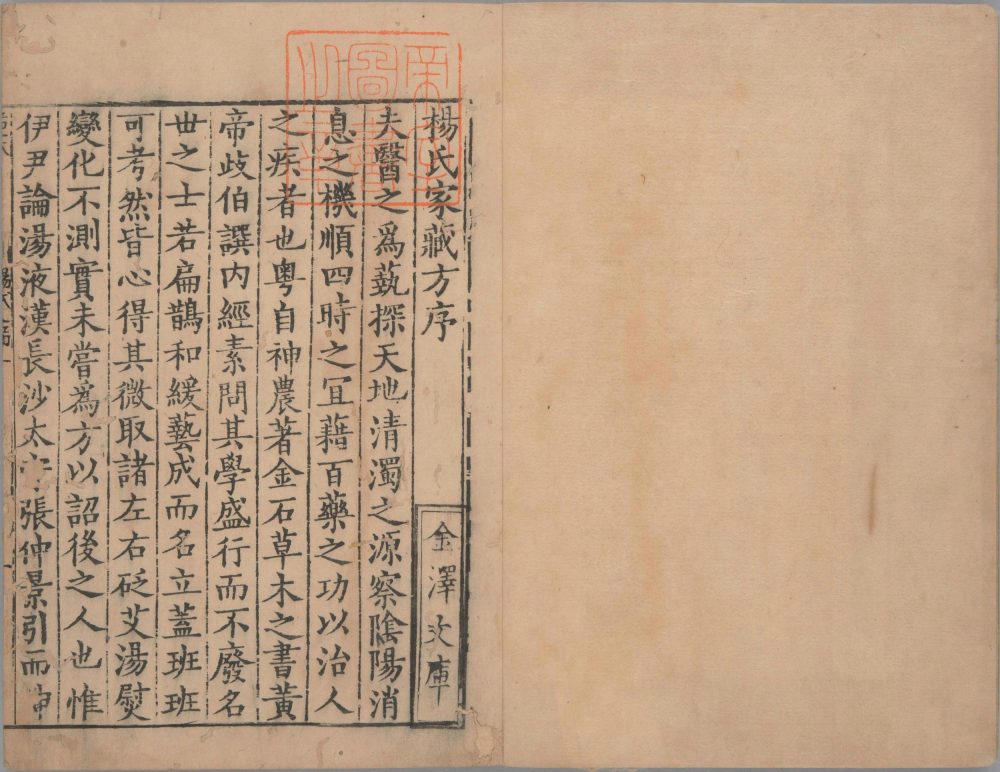 楊氏家藏方序
金澤文庫
夫醫之爲蓺探天地清濁之源察隂陽消
息之機順四時之宜藉百藥之功以治人
之疾者也粤自神農著金石草木之書黄
帝歧伯譔内經素問其學盛行而不廢名
世之士若扁鵲和緩藝成而名立蓋班班
可考然皆心得其微取諸左右砭艾湯熨
變化不測實未嘗爲方以詔後之人也惟
伊尹論湯液漢長沙太守張仲景引而伸